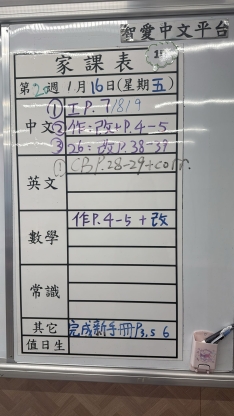 智愛中文平台
家課表
第20週 1月16日(星期五)
中文 ① 工P.7,8,19
② 作:改+P.4-5
③ 26:改P.38-39
英文 ① CB P.28-29+corr.
數學 作P.4-5 + 改
常識
其它 完成新手冊P3,5 6
值日生